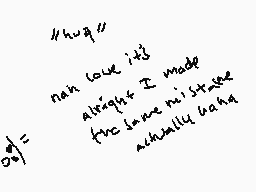 "hug"
nah love it's
alright I made
the same mistake
actually haha